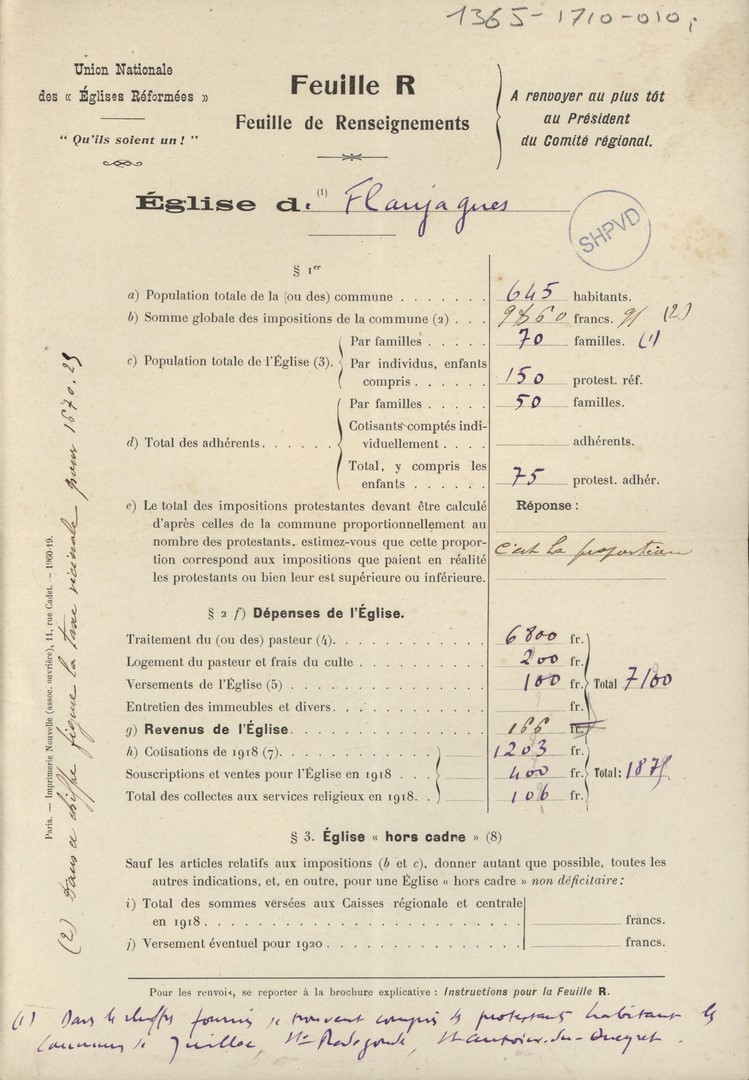 1365-1710-010;
Union Nationale
des « Églises Réformées »
" Qu'ils soient un ! "
Feuille R
Feuille de Renseignements
A renvoyer au plus tôt
au Président
du Comité régional.
Église de (1) Flaujagues
SHPVD
§ 1er
a) Population totale de la (ou des) commune . . . . . . . 645 habitants.
b) Somme globale des impositions de la commune (2) . . . francs. (2)
Par familles . . . . . . 70 familles. (1)
c) Population totale de l'Église (3).
Par individus, enfants
compris . . . . . . 150 protest. réf.
Par familles . . . . . 50 familles.
Cotisants comptés indi-
d) Total des adhérents. . . . . . . viduellement . . . . adhérents.
Total, y compris les
enfants . . . . . . 75 protest. adhér.
e) Le total des impositions protestantes devant être calculé
d'après celles de la commune proportionnellement au
nombre des protestants, estimez-vous que cette propor-
tion correspond aux impositions que paient en réalité
les protestants ou bien leur est supérieure ou inférieure.
Réponse :
c'est la proportion
§ 2 f) Dépenses de l'Église.
Traitement du (ou des) pasteur (4). . . . . . . . . . . . 6800 fr.
Logement du pasteur et frais du culte . . . . . . . . . . 200 fr.
Versements de l'Église (5) . . . . . . . . . . . . . . . 100 fr. Total 7100
Entretien des immeubles et divers. . . . . . . . . . . . fr.
g) Revenus de l'Église. . . . . . . . . . . . . . . . . . 166 fr.
h) Cotisations de 1918 (7). . . . . . . . . . . . 1203 fr.
Souscriptions et ventes pour l'Église en 1918 . . . 400 fr. Total : 1875
Total des collectes aux services religieux en 1918. . 106 fr.
§ 3. Église « hors cadre » (8)
Sauf les articles relatifs aux impositions (b et c), donner autant que possible, toutes les
autres indications, et, en outre, pour une Église « hors cadre » non déficitaire :
i) Total des sommes versées aux Caisses régionale et centrale
en 1918 . . . . . . . . . . . . . . . . . . . . . . francs.
j) Versement éventuel pour 1920 . . . . . . . . . . . . . francs.
Pour les renvois, se reporter à la brochure explicative : Instructions pour la Feuille R.
(1) Dans les chiffres fournis se trouvent compris les protestants habitant les
communes de Juillac, Ste Radegonde, St Antoine-du-Queyret.
Paris. — Imprimerie Nouvelle (assoc. ouvrière), 11, rue Cadet. — 1960-19.
(2) Dans ce chiffre figure la taxe vicinale pour 1670.25